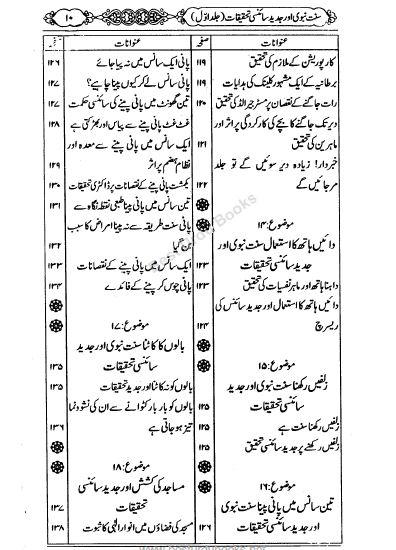 سنت نبوی اور جدید سائنسی تحقیقات (جلد اوّل)
۱۰
عنوانات
صفحہ
کارپوریشن کے ملازم کی تحقیق
۱۱۹
برطانیہ کے ایک مشہور کلینک کی ہدایات
۱۱۹
رات جاگنے کے نقصان پر مسٹر جیرالڈ کی تحقیق
۱۲۰
دیر تک جاگنے کا بچے کی کارکردگی پر اثر اور
ماہرین کی تحقیق
۱۲۱
خبردار! زیادہ دیر سوئیں گے تو جلد
مر جائیں گے
۱۲۲
موضوع: ۱۴
دائیں ہاتھ کا استعمال سنت نبوی اور
جدید سائنسی تحقیقات
۱۲۳
داہنا ہاتھ اور ماہر نفسیات کی تحقیق
۱۲۳
دائیں ہاتھ کا استعمال اور جدید سائنس کی
ریسرچ
۱۲۴
موضوع: ۱۵
زلفیں رکھنا سنت نبوی اور جدید
سائنسی تحقیقات
۱۲۵
زلفیں رکھنا سنت ہے
۱۲۵
زلفیں رکھنے پر جدید سائنسی تحقیق
۱۲۵
موضوع: ۱۶
تین سانس میں پانی پینا سنت نبوی
اور جدید سائنسی تحقیقات
۱۲۶
عنوانات
صفحہ
پانی ایک سانس میں نہ پیا جائے
۱۲۶
پانی سانس لے کر کیوں پینا چاہیے؟
۱۲۷
تین گھونٹ میں پانی پینے کی سائنسی حکمت
۱۲۷
غٹ غٹ پانی پینے سے پیاس اور بھڑکتی ہے
۱۲۸
ایک سانس میں پانی پینے سے معدہ اور
نظام ہضم پر اثر
۱۲۹
یکمشت پانی پینے کے نقصانات پر ڈاکٹری تحقیقات
۱۳۰
تین سانس میں پانی پینا طبی نقطہ نگاہ سے
۱۳۱
پانی سنت طریقہ سے نہ پینا امراض کا سبب
بن گیا
۱۳۲
ایک سانس میں پانی پینے کے نقصانات
۱۳۳
پانی چوس کر پینے کے فائدے
۱۳۴
موضوع: ۱۷
بالوں کا کاٹنا سنت نبوی اور جدید
سائنسی تحقیقات
۱۳۵
بالوں کو نہ کاٹنا اور جدید تحقیقات
۱۳۵
بالوں کو بار بار کٹوانے سے ان کی نشوونما
تیز ہو جاتی ہے
۱۳۶
موضوع: ۱۸
مساجد کی کشش اور جدید سائنسی
تحقیقات
۱۳۷
مسجد کی فضاؤں میں انوار الٰہی کا ثبوت
۱۳۸